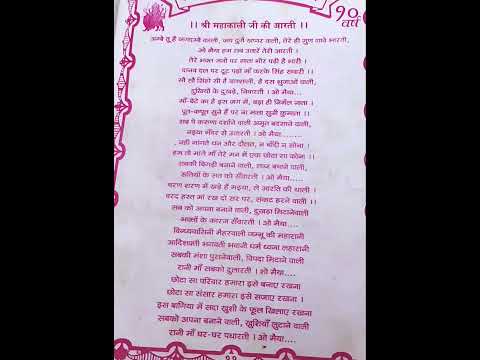 ९०
वर्ष
।। श्री महाकाली जी की आरती ।।
अम्बे तू है जगदम्बे काली, जय दुर्गे खप्पर वाली, तेरे ही गुण गावे भारती,
ओ मैया हम सब उतारें तेरी आरती ।
तेरे भक्त जनों पर माता भीर पड़ी है भारी ।
दानव दल पर टूट पड़ो माँ करके सिंह सवारी ।।
सौ सौ सिंहों सी है बलशाली, है दस भुजाओं वाली,
दुखियों के दुखड़े, निवारती । ओ मैया...
माँ-बेटे का है इस जग में, बड़ा ही निर्मल नाता ।
पूत-कपूत सुने हैं पर ना माता सुनी कुमाता ।।
सब पे करुणा दर्शाने वाली अमृत बरसाने वाली,
नइया भँवर से उतारती । ओ मैया.......
नहीं मांगते धन और दौलत, न चाँदी न सोना ।
हम तो मांगे माँ तेरे मन में एक छोटा सा कोना ।
सबकी बिगड़ी बनाने वाली, लाज बचाने वाली,
सतियों के सत को सँवारती । ओ मैया....
चरण शरण में खड़े हैं मइया, ले आरति की थाली ।
वरद हस्त माँ रख दो सर पर, संकट हरने वाली ।।
सब को अपना बनाने वाली, दुखड़ा मिटानेवाली
भक्तों के कारज सँवारती । ओ मैया....
विन्ध्यवासिनी मैहरवाली जम्मू की महारानी
आदिशक्ति भगवती भवानी धर्म ध्वजा लहरानी
सबकी मंशा पुरानेवाली, विपदा मिटाने वाली
रानी माँ सबको दुलारती । ओ मैया....
छोटा सा परिवार हमारा इसे बनाए रखना
छोटा सा संसार हमारा इसे सजाए रखना ।
इस बागिया में सदा खुशी के फूल खिलाए रखना
सबको अपना बनाने वाली, खुशियाँ लुटाने वाली
रानी माँ घर-घर पधारती । ओ मैया...